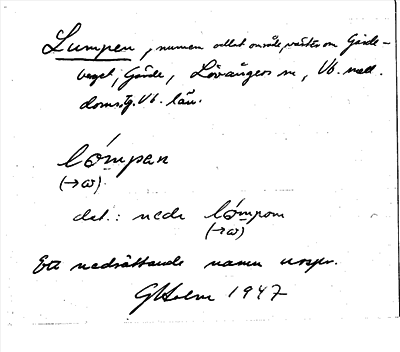 Lumpen, numera odlat område, väster om Gärde-
vaget, Gärde, Lövångers sn, Vb. mell.
doms.tg. Vb. län.
lómpan
(→ω)
dat.: nede lómpom
(→ω)
Ett nedsättande namn urspr.
GHolm 1947